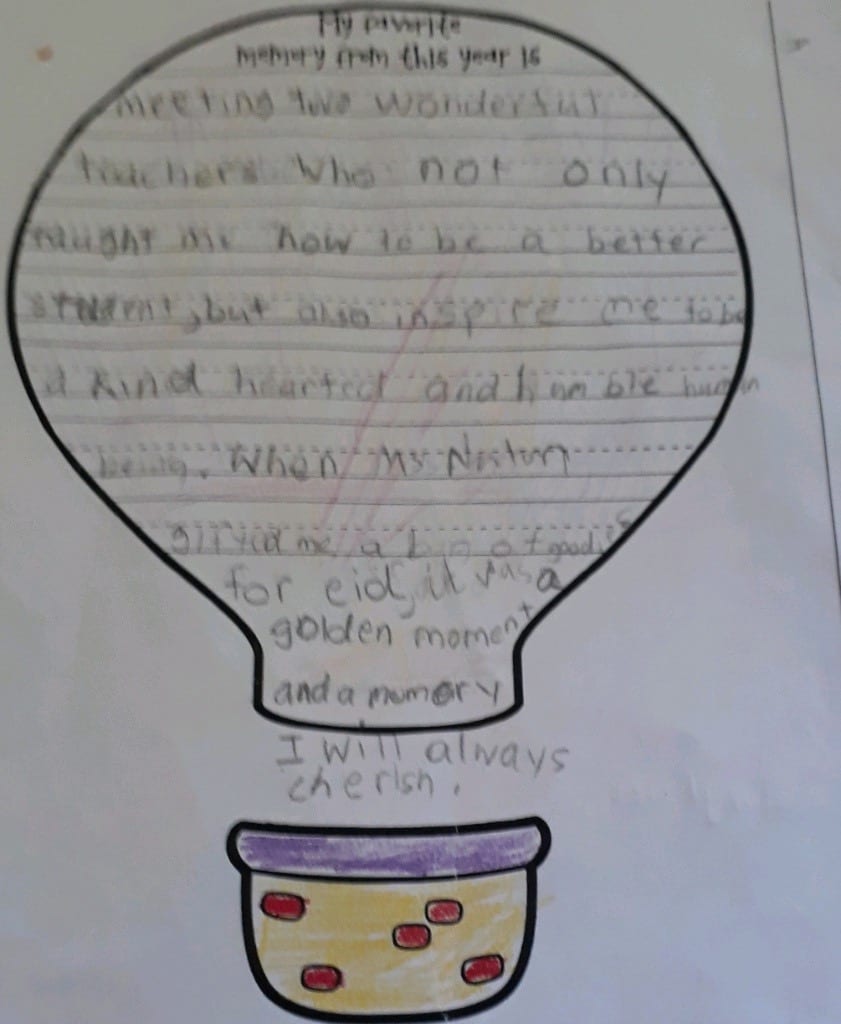 My favorite
memory from this year is
meeting two wonderful
teachers who not only
taught me how to be a better
student, but also inspire me to be
a kind hearted and humble human
being. When Ms. Norton
gifted me a b of goodies
for eid, it was a
golden moment
and a memory
I will always
cherish.